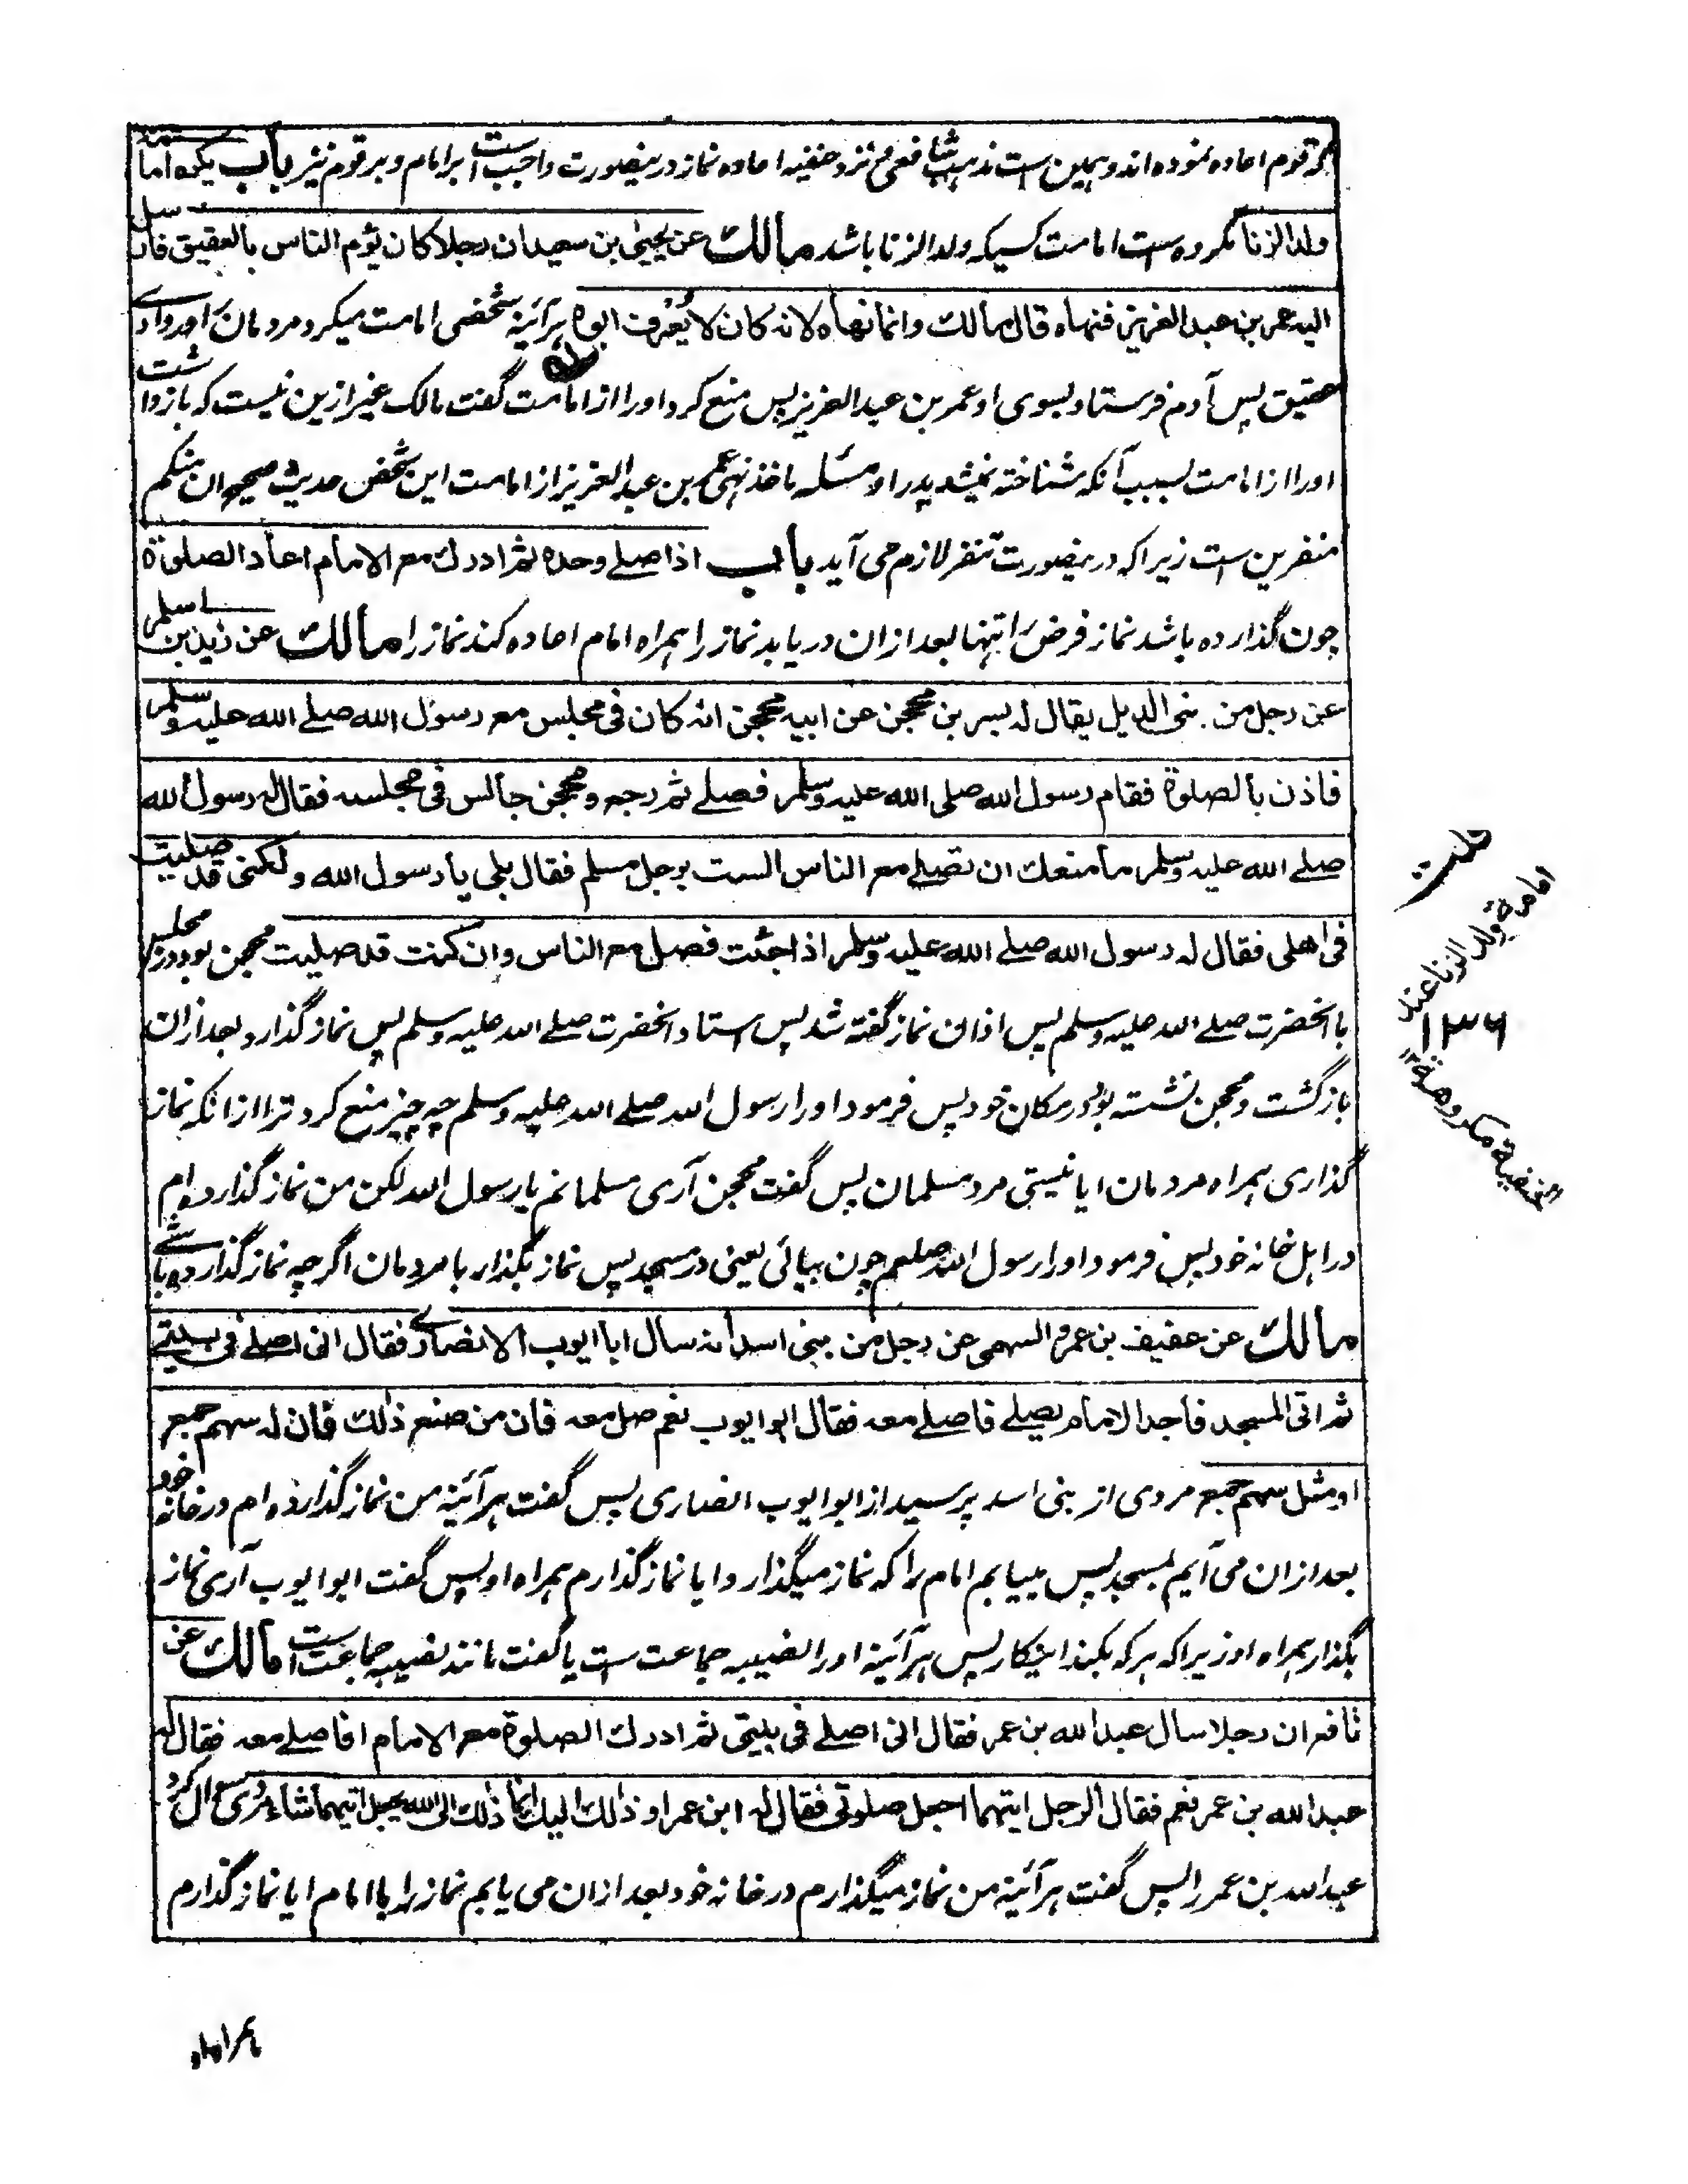 قوم اعاده نموده اند و همین ست مذهب شافعی و نزد حنفیه اعاده نماز درینصورت واجب ست بر امام و بر قوم نیز باب یکره امامة
ولد الزنا مکروه ست امامت کسیکه ولد الزنا باشد مالك عن یحیی بن سعید ان رجلا کان یؤم الناس بالعقیق فارسل
الیه عمر بن عبد العزیز فنهاه قال مالك وانما نهاه لانه کان لا یُعْرف ابوه هرآئینه شخصی امامت میکرد مردمان را در وادی
عقیق پس آدم فرستاد بسوی او عمر بن عبد العزیز پس منع کرد او را از امامت گفت مالک غیر ازین نیست که باز داشت
او را از امامت بسبب آنکه شناخته نمیشد پدر او مسئله ماخذ نهی عمر بن عبد العزیز از امامت این شخص حدیث صحیح ان منکم
منفرین ست زیرا که درینصورت تنفر لازم می آید باب اذا صلے وحده ثم ادرك مع الامام اعاد الصلوة
چون گذارده باشد نماز فرض را تنها بعد ازان دریابد نماز را همراه امام اعاده کند نماز را مالك عن زید بن اسلم
عن رجل من بنی الدیل یقال له بسر بن محجن عن ابیه محجن انه کان فی مجلس مع رسول الله صلے الله علیه وسلم
فاذن بالصلوة فقام رسول الله صلی الله علیه وسلم فصلے ثم رجع و محجن جالس فی مجلسه فقال له رسول الله
صلے الله علیه وسلم ما منعك ان تصلے مع الناس الست برجل مسلم فقال بلی یا رسول الله ولکنی قد صلیت
فی اهلی فقال له رسول الله صلے الله علیه وسلم اذا جئت فصل مع الناس وان کنت قد صلیت محجن بود در مجلس
با آنحضرت صلے الله علیه وسلم پس اذان نماز گفته شد پس استاد آنحضرت صلے الله علیه وسلم پس نماز گذارد بعد ازان
بازگشت و محجن نشسته بود در مکان خود پس فرمود او را رسول الله صلے الله علیه وسلم چه چیز منع کرد ترا از آنکه نماز
گذاری همراه مردمان ایا نیستی مرد مسلمان پس گفت محجن آری مسلمانم یا رسول الله لکن من نماز گذارده ام
در اهل خانه خود پس فرمود او را رسول الله صلعم چون بیائی یعنی در مسجد پس نماز بگذار با مردمان اگرچه نماز گذارده باشے
مالك عن عفیف بن عمرو السهمی عن رجل من بنی اسد انه سال ابا ایوب الانصارے فقال انی اصلے فی بیتی
ثم اتی المسجد فاجد الامام یصلے فاصلے معه فقال ابو ایوب نعم صل معه فان من صنع ذلك فان له سهم جمع
او مثل سهم جمع مردی از بنی اسد پرسید از ابو ایوب انصاری پس گفت هرآئینه من نماز گذارده ام در خانه خود
بعد ازان می آیم بمسجد پس مییابم امام را که نماز میگذارد ایا نماز گذارم همراه او پس گفت ابو ایوب آری نماز
بگذار همراه او زیرا که هر که بکند اینکار پس هرآئینه او را نصیبه جماعت ست یا گفت مانند نصیبه جماعت ست مالك عن
نافع ان رجلا سال عبد الله بن عمر فقال انی اصلے فی بیتی ثم ادرك الصلوة مع الامام افاصلے معه فقال له
عبد الله بن عمر نعم فقال الرجل ایتهما اجعل صلوتی فقال له ابن عمر او ذلك الیك انما ذلك الی الله یجعل ایتهما شاء مردی سوال کرد
عبد الله بن عمر را پس گفت هرآئینه من نماز میگذارم در خانه خود بعد ازان می یابم نماز را با امام ایا نماز گذارم
قلت
امامة ولد الزنا عند
۱۳۶
الحنفیة مکروهة ۱۲
همراه او